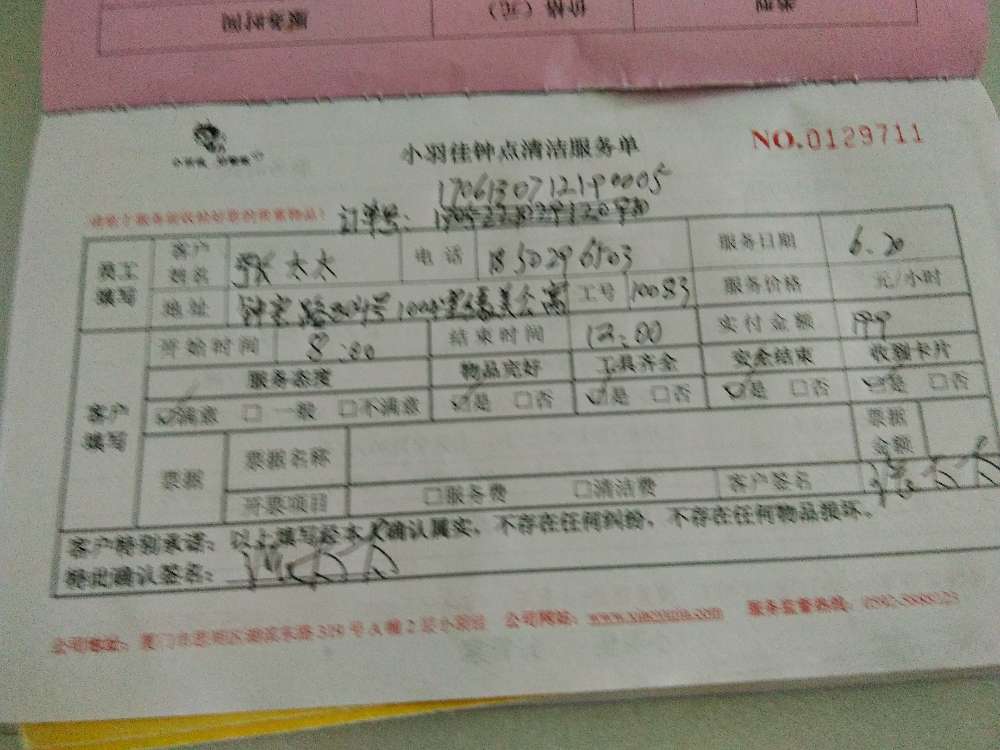 小羽佳钟点清洁服务单
NO.0129711
1706130712190005
订单号:
员工填写 客户姓名 张太太 电话 服务日期 6.20
地址 工号 10083 服务价格 元/小时
客户填写 开始时间 8:00 结束时间 12:00 实付金额 199
服务态度 物品完好 工具齐全 安全结束 收到卡片
☑满意 □一般 □不满意 ☑是 □否 ☑是 □否 ☑是 □否 ☑是 □否
票据 票据名称 票据金额
开票项目 □服务费 □清洁费 客户签名
客户特别承诺:以上填写经本人确认属实,不存在任何纠纷,不存在任何物品损坏。
特此确认签名:
公司地址:厦门市思明区湖滨东路319号A幢2层小羽佳 公司网站:www.xiaoyujia.com 服务监督热线: